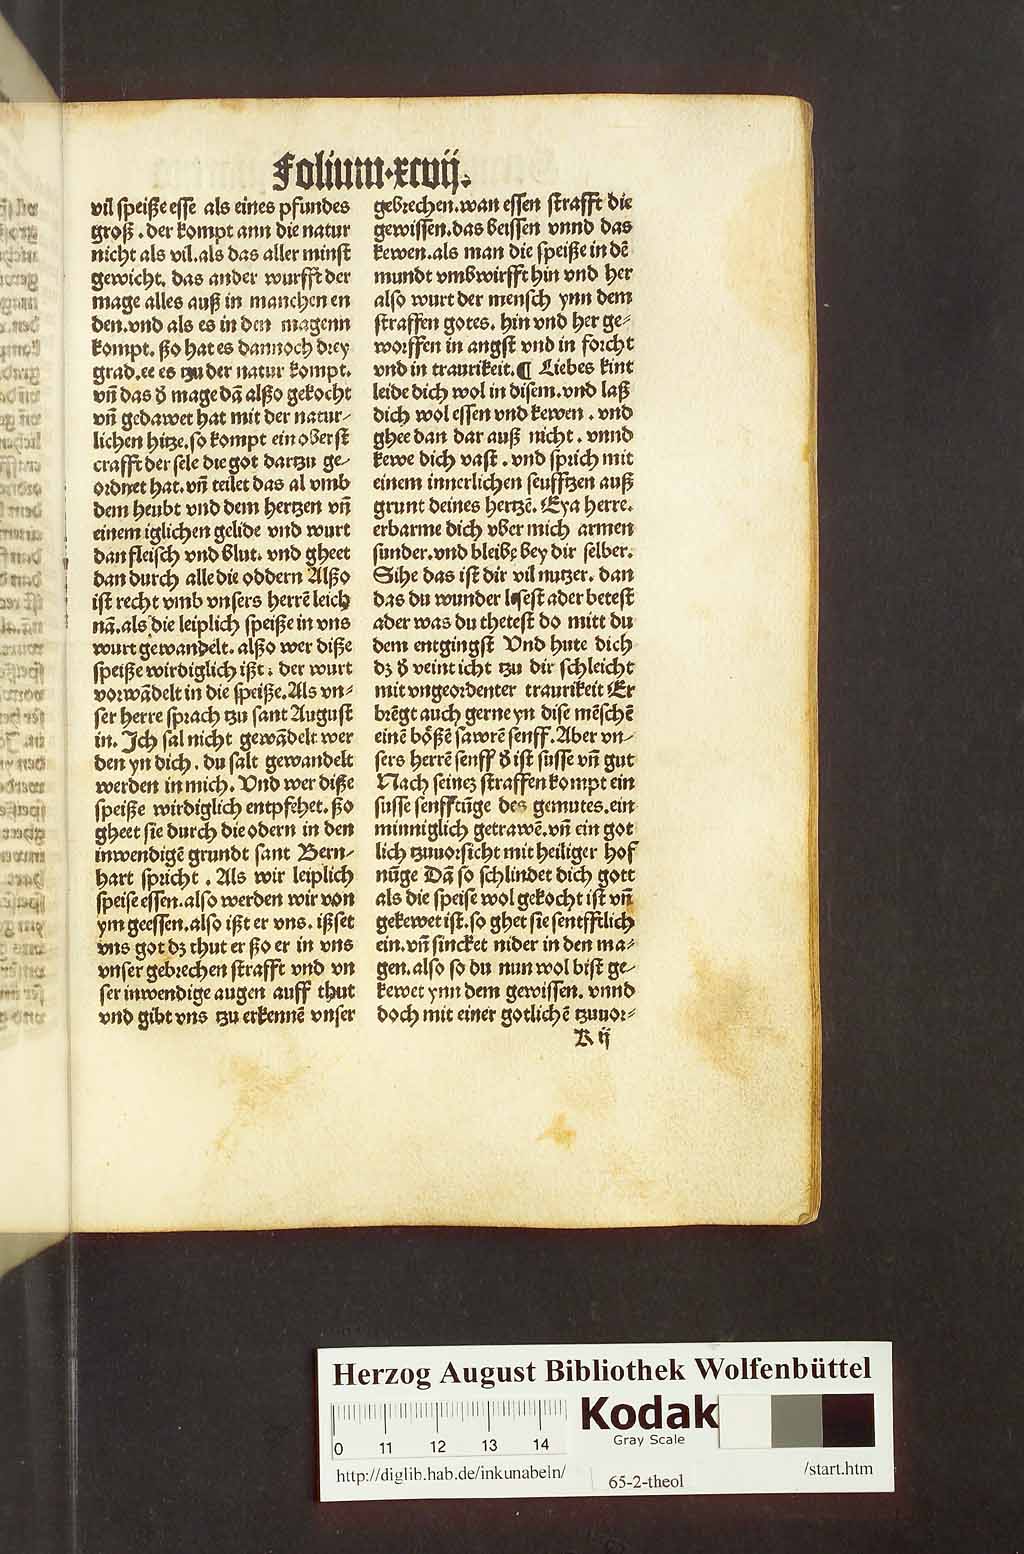 Folium·xcvij.
vil speiße esse als eines pfundes
groß. der kompt ann die natur
nicht als vil. als das aller minst
gewicht. das ander wurfft der
mage alles auß in manchen en
den. vnd als es in den magenn
kompt. ßo hat es dannoch drey
grad. ee es tzu der natur kompt.
vn̄ das d̕ mage dā alßo gekocht
vn̄ gedawet hat mit der natur⸗
lichen hitze. so kompt ein oberst
crafft der sele die got dartzu ge⸗
ordnet hat. vn̄ teilet das al vmb
dem heubt vnd dem hertzen vn̄
einem iglichen gelide vnd wurt
dan fleisch vnd blut. vnd gheet
dan durch alle die oddern Alßo
ist recht vmb vnsers herrē leich
nā. als die leiplich speiße in vns
wurt gewandelt. alßo wer diße
speiße wirdiglich ißt. der wurt
vorwādelt in die speiße. Als vn⸗
ser herre sprach tzu sant August
in. Ich sal nicht gewādelt wer
den yn dich. du salt gewandelt
werden in mich. Vnd wer diße
speiße wirdiglich entpfehet. ßo
gheet sie durch die odern in den
inwendigē grundt sant Bern⸗
hart spricht. Als wir leiplich
speise essen. also werden wir von
ym geessen. also ißt er vns. ißset
vns got dz thut er ßo er in vns
vnser gebrechen strafft vnd vn
ser inwendige augen auff thut
vnd gibt vns tzu erkennē vnser
gebrechen. wan essen strafft die
gewissen. das beissen vnnd das
kewen. als man die speiße in dē
mundt vmbwirfft hin vnd her
also wurt der mensch ynn dem
straffen gotes. hin vnd her ge⸗
worffen in angst vnd in forcht
vnd in traurikeit. ¶ Liebes kint
leide dich wol in disem. vnd laß
dich wol essen vnd kewen. vnd
ghee dan dar auß nicht. vnnd
kewe dich vast. vnd sprich mit
einem innerlichen seufftzen auß
grunt deines hertzē. Eya herre.
erbarme dich vber mich armen
sunder. vnd bleibe bey dir selber.
Sihe das ist dir vil nutzer. dan
das du wunder lesest ader betest
ader was du thetest do mitt du
dem entgingst Vnd hute dich
dz d̕ veint icht tzu dir schleicht
mit vngeordenter traurikeit Er
brēgt auch gerne yn dise mēschē
einē bößē sawrē senff. Aber vn⸗
sers herrē senff d̕ ist susse vn̄ gut
Nach seinez straffen kompt ein
susse senfftūge des gemutes. ein
minniglich getrawē. vn̄ ein got
lich tzuuorsicht mit heiliger hof
nūge Dā so schlindet dich gott
als die speise wol gekocht ist vn̄
gekewet ist. so ghet sie sentfftlich
ein. vn̄ sincket nider in den ma⸗
gen. also so du nun wol bist ge⸗
kewet ynn dem gewissen. vnnd
doch mit einer gotlichē tzuuor⸗
R ij
Herzog August Bibliothek Wolfenbüttel
0 11 12 13 14
Kodak
Gray Scale
http://diglib.hab.de/inkunabeln/
65-2-theol
/start.htm